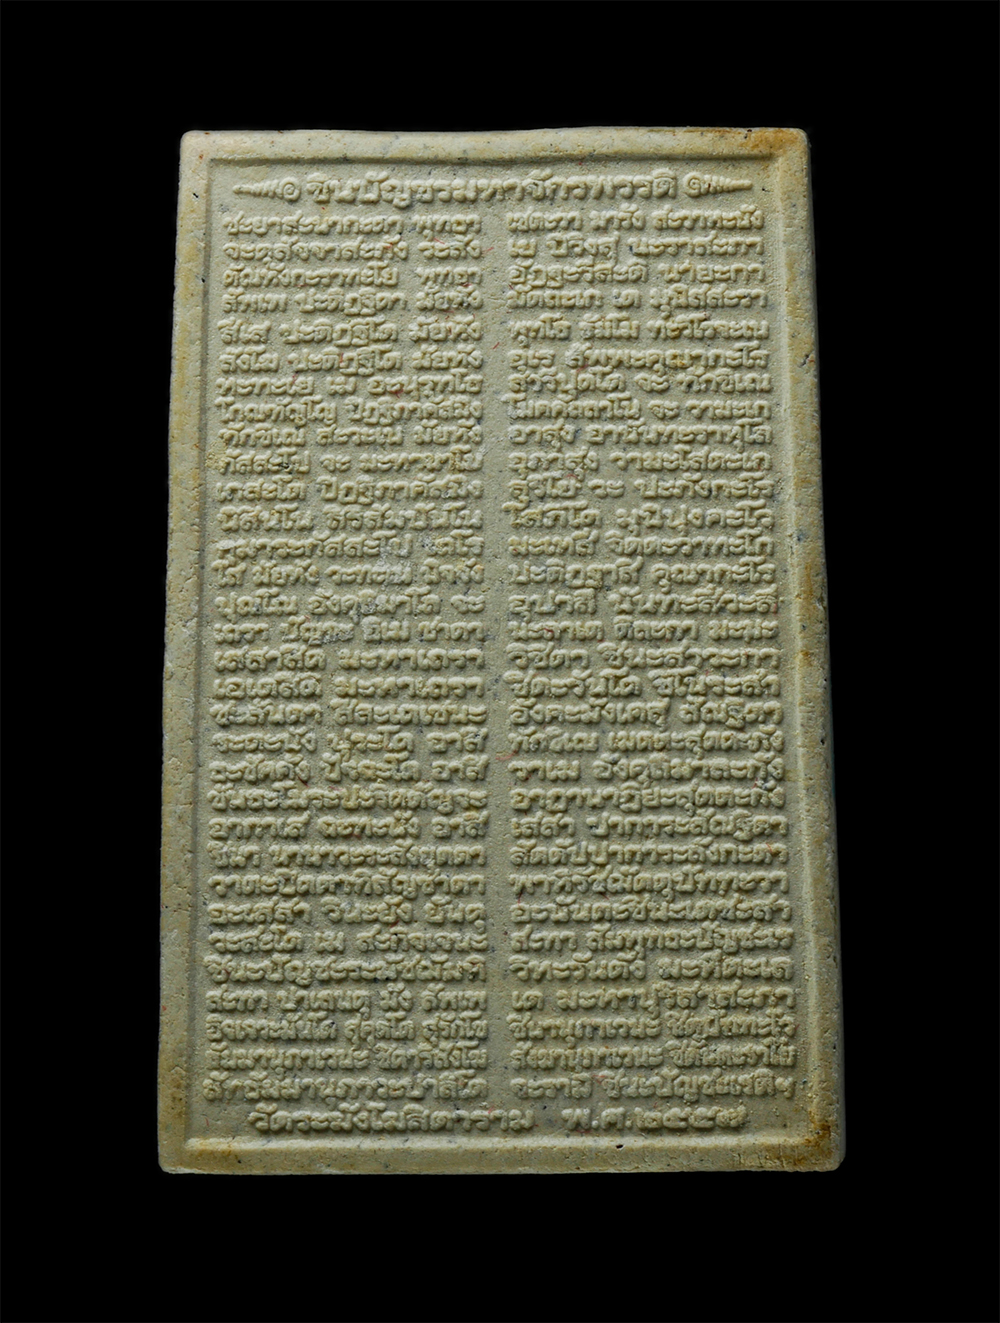 ชินบัญชรมหาจักรพรรดิ
ชะยาสะนากะตา พุทธา เชตะวา มารัง สะวาหะนัง
จะตุสัจจาสะภัง ระสัง เย ปิวิงสุ นะราสะภา
ตัณหังกะราทะโย พุทธา อัฏฐะวีสะติ นายะกา
สัพเพ ปะติฏฐิตา มัยหัง มัตถะเก เต มุนิสสะรา
สีเส ปะติฏฐิโต มัยหัง พุทโธ ธัมโม ทะวิโลจะเน
สังโฆ ปะติฏฐิโต มัยหัง อุเร สัพพะคุณากะโร
หะทะเย เม อะนุรุทโธ สารีปุตโต จะ ทักขิเณ
โกณฑัญโญ ปิฏฐิภาคัสมิง โมคคัลลาโน จะ วามะเก
ทักขิเณ สะวะเน มัยหัง อาสุง อานันทะราหุโล
กัสสะโป จะ มะหานาโม อุภาสุง วามะโสตะเก
เกสะโต ปิฏฐิภาคัสมิง สุริโย วะ ปะภังกะโร
นิสินโน สิริสัมปันโน โสภิโต มุนิปุงคะโว
กุมาระกัสสะโป เถโร มะเหสี จิตตะวาทะโก
โส มัยหัง วะทะเน นิจจัง ปะติฏฐาสิ คุณากะโร
ปุณโณ อังคุลิมาโล จะ อุปาลี นันทะสีวะลี
เถรา ปัญจะ อิเม ชาตา นะลาเต ติละกา มะมะ
เสสาสีติ มะหาเถรา วิชิตา ชินะสาวะกา
เอเตสีติ มะหาเถรา ชิตะวันโต ชิโนระสา
ชะลันตา สีละเตเชนะ อังคะมังเคสุ สัณฐิตา
ระตะนัง ปุระโต อาสิ ทักขิเณ เมตตะสุตตะกัง
ธะชัคคัง ปัจฉะโต อาสิ วาเม อังคุลิมาละกัง
ขันธะโมระปะริตตัญจะ อาฏานาฏิยะสุตตะกัง
อากาเส ฉะทะนัง อาสิ เสสา ปาการะสัณฐิตา
ชินา นานาวะระสังยุตตา สัตตัปปาการะลังกะตา
วาตะปิตตาทิสัญชาตา พาหิรัชฌัตตุปัททะวา
อะเสสา วินะยัง ยันตุ อะนันตะชินะเตชะสา
วะสะโต เม สะกิจเจนะ สะทา สัมพุทธะปัญชะเร
ชินะปัญชะระมัชฌัมหิ วิหะรันตัง มะหีตะเล
สะทา ปาเลนตุ มัง สัพเพ เต มะหาปุริสาสะภา
อิจเจวะมันโต สุคุตโต สุรักโข ชินานุภาเวนะ ชิตุปัททะโว
ธัมมานุภาเวนะ ชิตาริสังโฆ สังฆานุภาเวนะ ชิตันตะราโย
สัทธัมมานุภาวะปาลิโต จะรามิ ชินะปัญชะเรติฯ
วัดระฆังโฆสิตาราม พ.ศ.๒๕๕๗